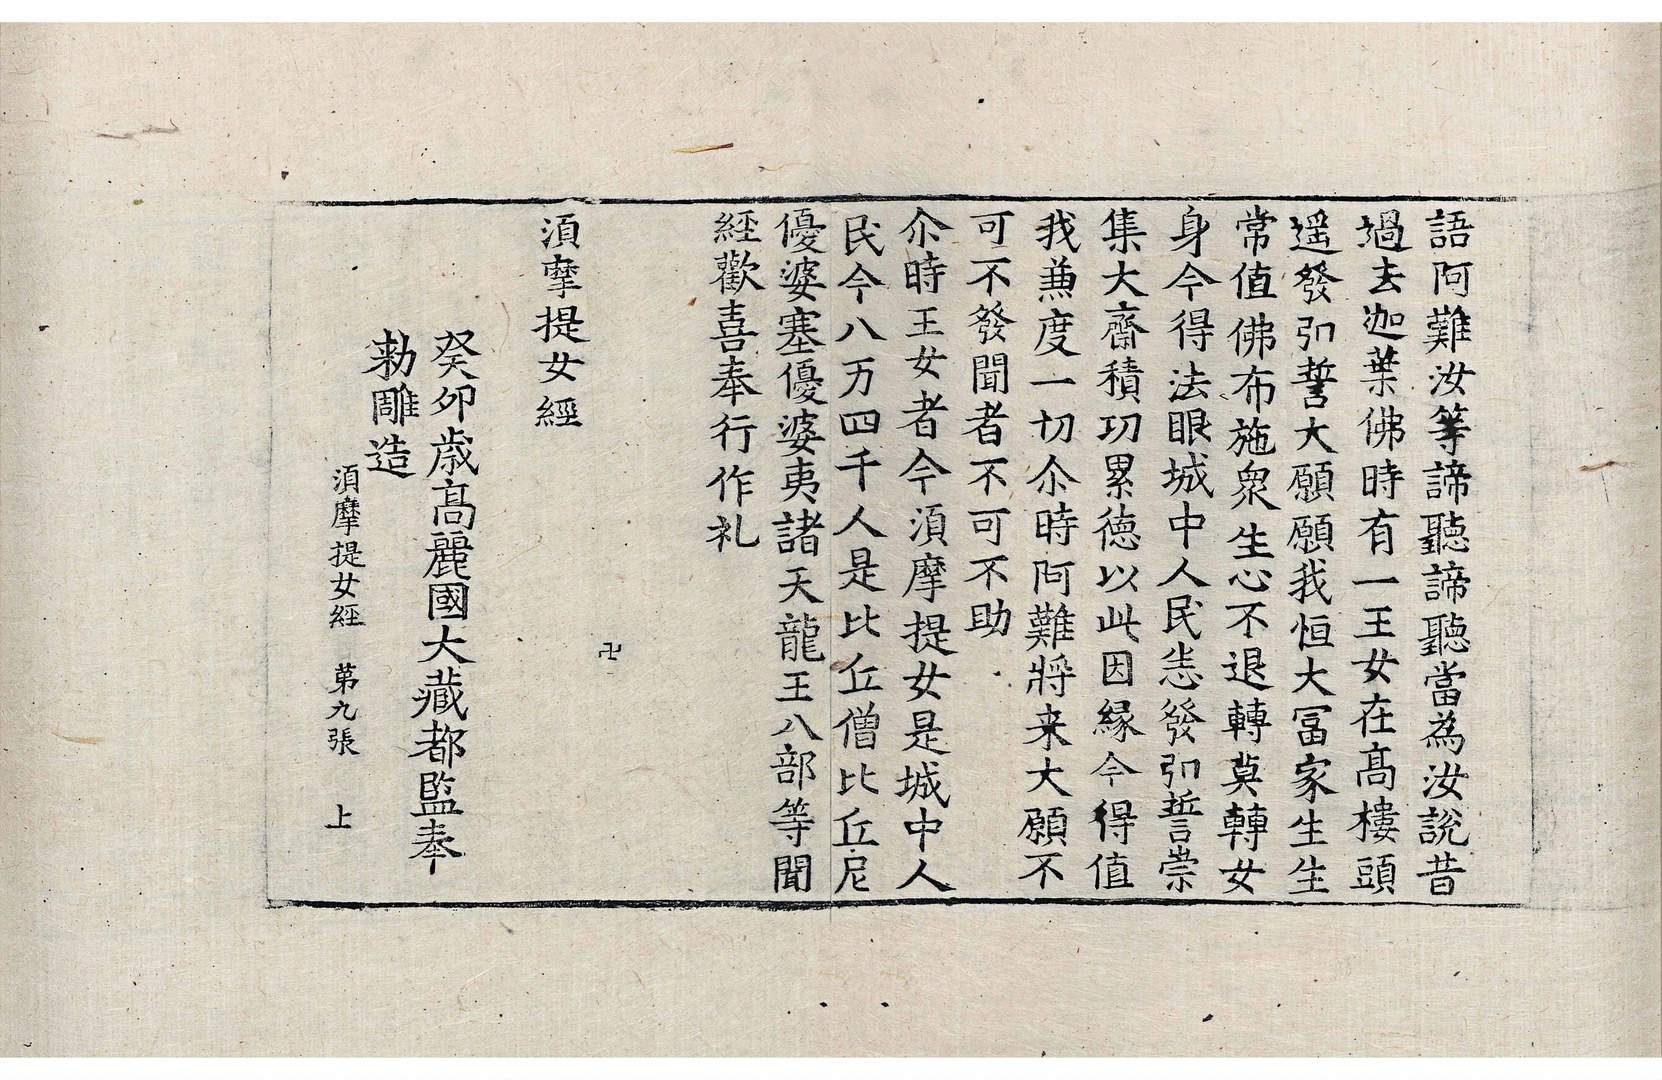 語阿難汝等諦聽諦聽當為汝説昔
過去迦葉佛時有一王女在髙樓頭
遥發引誓大願願我恒大冨家生生
常值佛布施衆生心不退轉莫轉女
身今得法眼城中人民悉發引誓崇
集大齋積功累德以此因緣今得值
我兼度一切尒時阿難將来大願不
可不發聞者不可不助
尒時王女者今湏摩提女是城中人
民今八万四千人是比丘僧比丘尼
優婆塞優婆夷諸天龍王八部等聞
經歡喜奉行作礼
卍
湏摩提女經
癸卯歳髙麗國大藏都監奉
勑雕造
湏摩提女經 苐九張 上